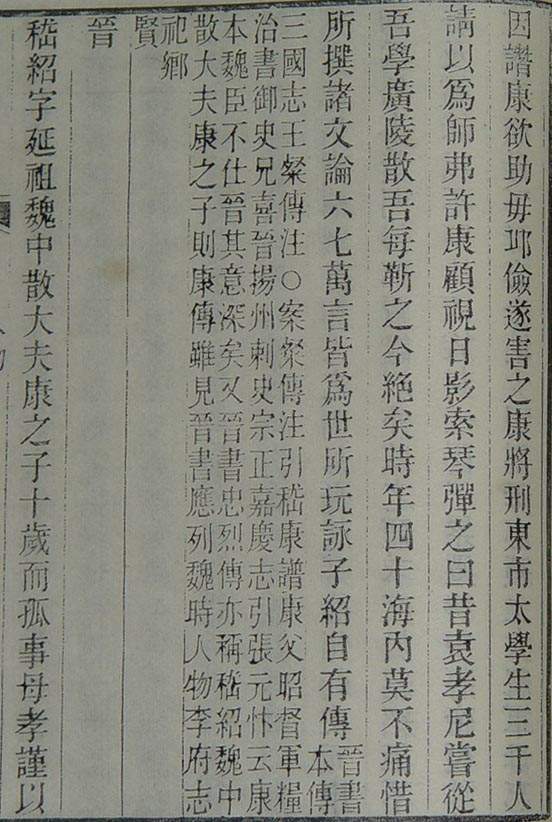 因譖康欲助毋邱儉遂害之康將刑東市太學生三千人
請以爲師弗許康顧視日影索琴彈之曰昔袁孝尼嘗從
吾學廣陵散吾每靳之今絶矣時年四十海內莫不痛惜
所撰諸文論六七萬言皆爲世所玩詠子紹自有傳
晉書
本傳
三國志王粲傳注○案粲傳注引嵇康譜康父昭督軍糧
治書御史兄喜晉揚州刺史宗正嘉慶志引張元忭云康
本魏臣不仕晉其意深矣又晉書忠烈傳亦稱嵇紹魏中
散大夫康之子則康傳雖見晉書應列魏時人物李府志
祀鄉
賢
晉
嵇紹字延祖魏中散大夫康之子十歲而孤事母孝謹以